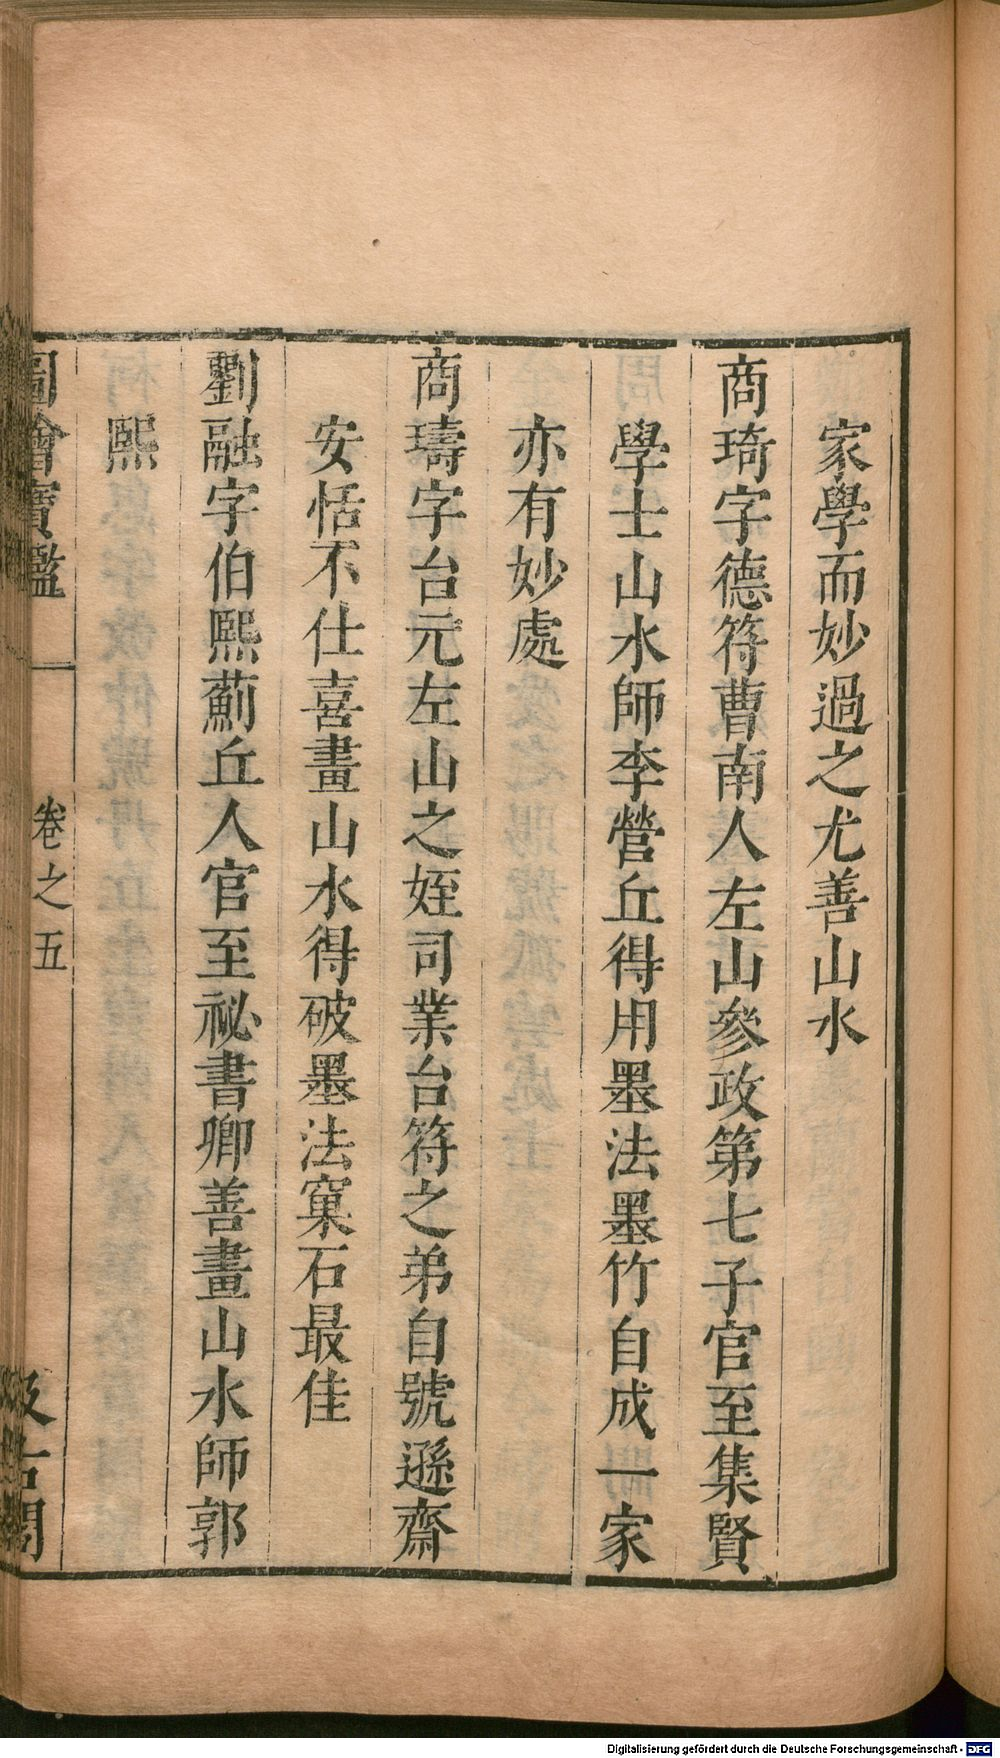 家學而妙過之尤善山水
商琦字德符曹南人左山參政第七子官至集賢
學士山水師李營丘得用墨法墨竹自成一家
亦有妙處
商璹字台元左山之姪司業台符之弟自號遜齋
安恬不仕喜畫山水得破墨法窠石最佳
劉融字伯熙薊丘人官至祕書卿善畫山水師郭
熙
圖繪寶鑑 卷之五 汲古閣
Digitalisierung gefördert durch die Deutsche Forschungsgemeinschaft - DFG